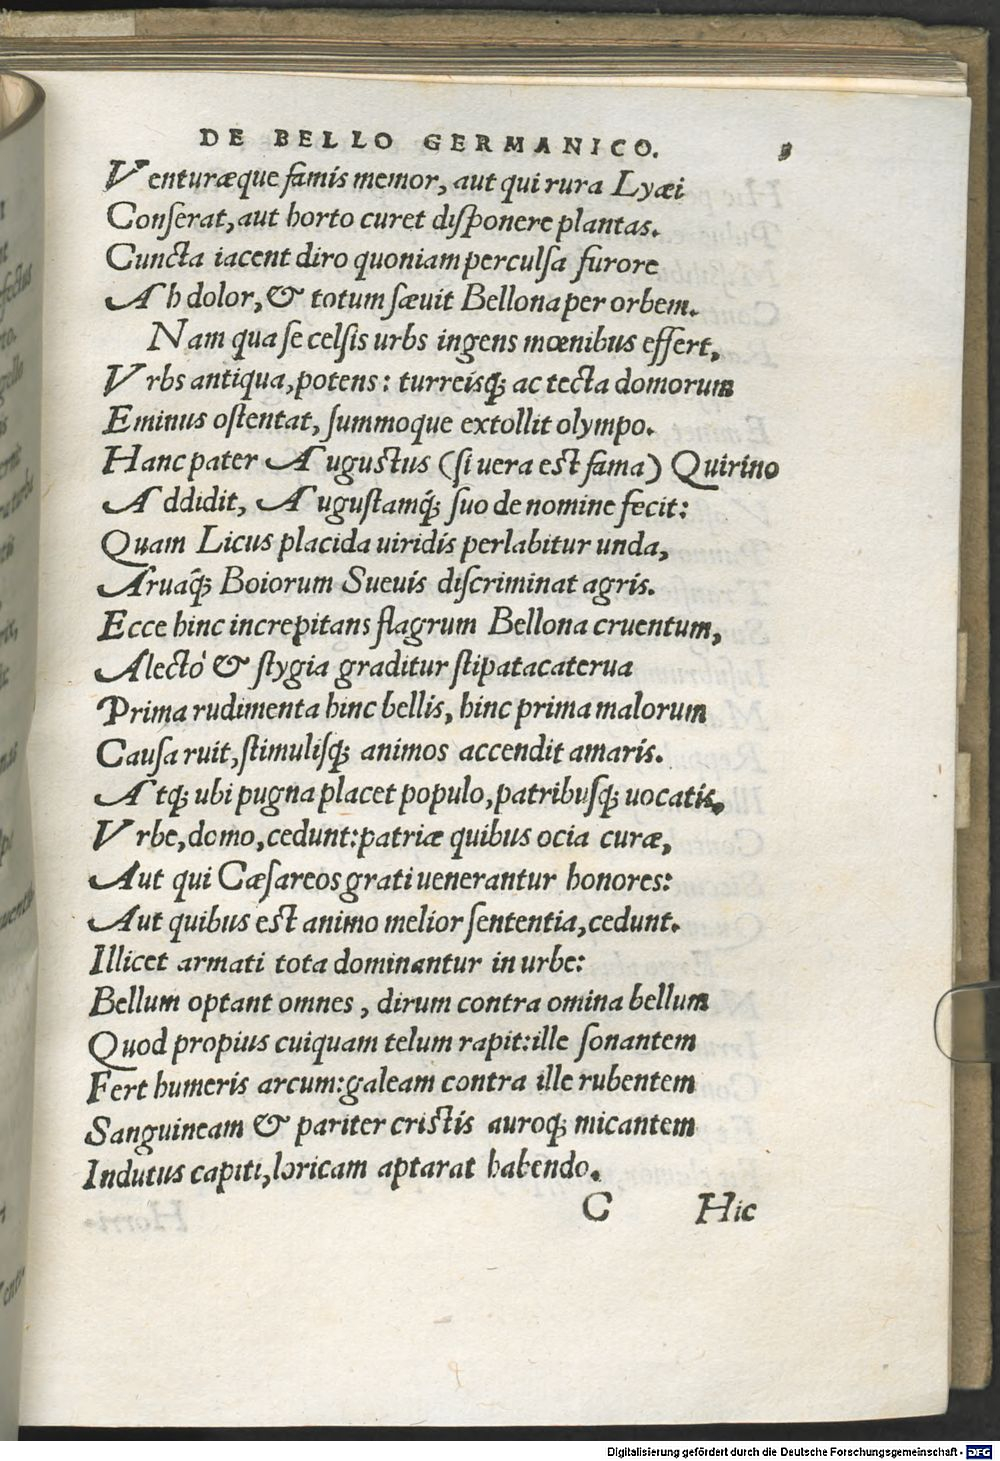 DE BELLO GERMANICO. 9
Venturæque famis memor, aut qui rura Lyæi
Conſerat, aut horto curet diſponere plantas.
Cuncta iacent diro quoniam perculſa furore
Ah dolor, & totum ſæuit Bellona per orbem.
Nam qua ſe celſis urbs ingens mœnibus effert,
Vrbs antiqua, potens: turreisq́; ac tecta domorum
Eminus oſtentat, ſummoque extollit olympo.
Hanc pater Auguſtus (ſi uera eſt fama) Quirino
Addidit, Auguſtamq́; ſuo de nomine fecit:
Quam Licus placida uiridis perlabitur unda,
Aruaq́; Boiorum Sueuis diſcriminat agris.
Ecce hinc increpitans flagrum Bellona cruentum,
Alectó & ſtygia graditur ſtipata caterua
Prima rudimenta hinc bellis, hinc prima malorum
Cauſa ruit, ſtimuliſq́; animos accendit amaris.
Atq́; ubi pugna placet populo, patribuſq́; uocatis,
Vrbe, domo, cedunt: patriæ quibus ocia curæ,
Aut qui Cæſareos grati uenerantur honores:
Aut quibus eſt animo melior ſententia, cedunt.
Illicet armati tota dominantur in urbe:
Bellum optant omnes, dirum contra omina bellum
Quod propius cuiquam telum rapit: ille ſonantem
Fert humeris arcum: galeam contra ille rubentem
Sanguineam & pariter criſtis auroq́; micantem
Indutus capiti, loricam aptarat habendo.
C Hic
Digitalisierung gefördert durch die Deutsche Forschungsgemeinschaft - DFG